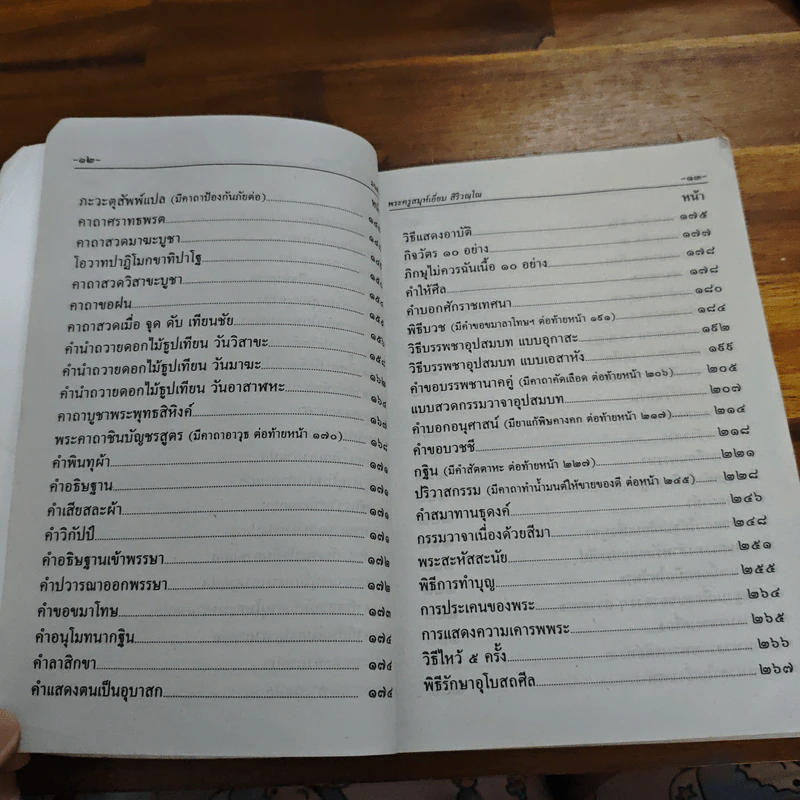 -๑๒-
ภะวะตุสัพพ์แปล (มีคาถาป้องกันภัยต่อ)
คาถาศราทธพรต
คาถาสวดมาฆะบูชา
โอวาทปาฏิโมกขาทิปาโฐ
คาถาสวดวิสาขะบูชา
คาถาขอฝน
คาถาสวดเมื่อ จุด ดับ เทียนชัย
คำนำถวายดอกไม้ธูปเทียน วันวิสาขะ
คำนำถวายดอกไม้ธูปเทียน วันมาฆะ
คำนำถวายดอกไม้ธูปเทียน วันอาสาฬหะ
คาถาบูชาพระพุทธสิหิงค์
พระคาถาชินบัญชรสูตร (มีคาถาอาวุธ ต่อท้ายหน้า ๑๗๐)
คำพินทุผ้า ๑๗๑
คำอธิษฐาน ๑๗๑
คำเสียสละผ้า ๑๗๑
คำวิกัปป์ ๑๗๑
คำอธิษฐานเข้าพรรษา ๑๗๒
คำปวารณาออกพรรษา ๑๗๒
คำขอขมาโทษ ๑๗๓
คำอนุโมทนากฐิน ๑๗๔
คำลาสิกขา ๑๗๔
คำแสดงตนเป็นอุบาสก ๑๗๔
พระครูสมุห์เอี่ยม สิริวณฺโณ -๑๓-
หน้า
วิธีแสดงอาบัติ ๑๗๕
กิจวัตร ๑๐ อย่าง ๑๗๗
ภิกษุไม่ควรฉันเนื้อ ๑๐ อย่าง ๑๗๘
คำให้ศีล ๑๗๘
คำบอกศักราชเทศนา ๑๘๐
พิธีบวช (มีคำขอขมาลาโทษฯ ต่อท้ายหน้า ๑๙๑) ๑๘๔
วิธีบรรพชาอุปสมบท แบบอุกาสะ ๑๙๒
วิธีบรรพชาอุปสมบท แบบเอสาหัง ๑๙๙
คำขอบรรพชานาคคู่ (มีคาถาคัดเลือด ต่อท้ายหน้า ๒๐๖) ๒๐๕
แบบสวดกรรมวาจาอุปสมบท ๒๐๗
คำบอกอนุศาสน์ (มียาแก้พิษคางคก ต่อท้ายหน้า ๒๑๗) ๒๑๔
คำขอบวชชี ๒๑๘
กฐิน (มีคำสัตตาหะ ต่อท้ายหน้า ๒๒๗) ๒๒๑
ปริวาสกรรม (มีคาถาทำน้ำมนต์ให้ขายของดี ต่อหน้า ๒๔๕) ๒๒๘
คำสมาทานธุดงค์ ๒๔๖
กรรมวาจาเนื่องด้วยสีมา ๒๔๘
พระสะหัสสะนัย ๒๕๑
พิธีการทำบุญ ๒๕๕
การประเคนของพระ ๒๖๔
การแสดงความเคารพพระ ๒๖๕
วิธีไหว้ ๕ ครั้ง ๒๖๖
พิธีรักษาอุโบสถศีล ๒๖๗